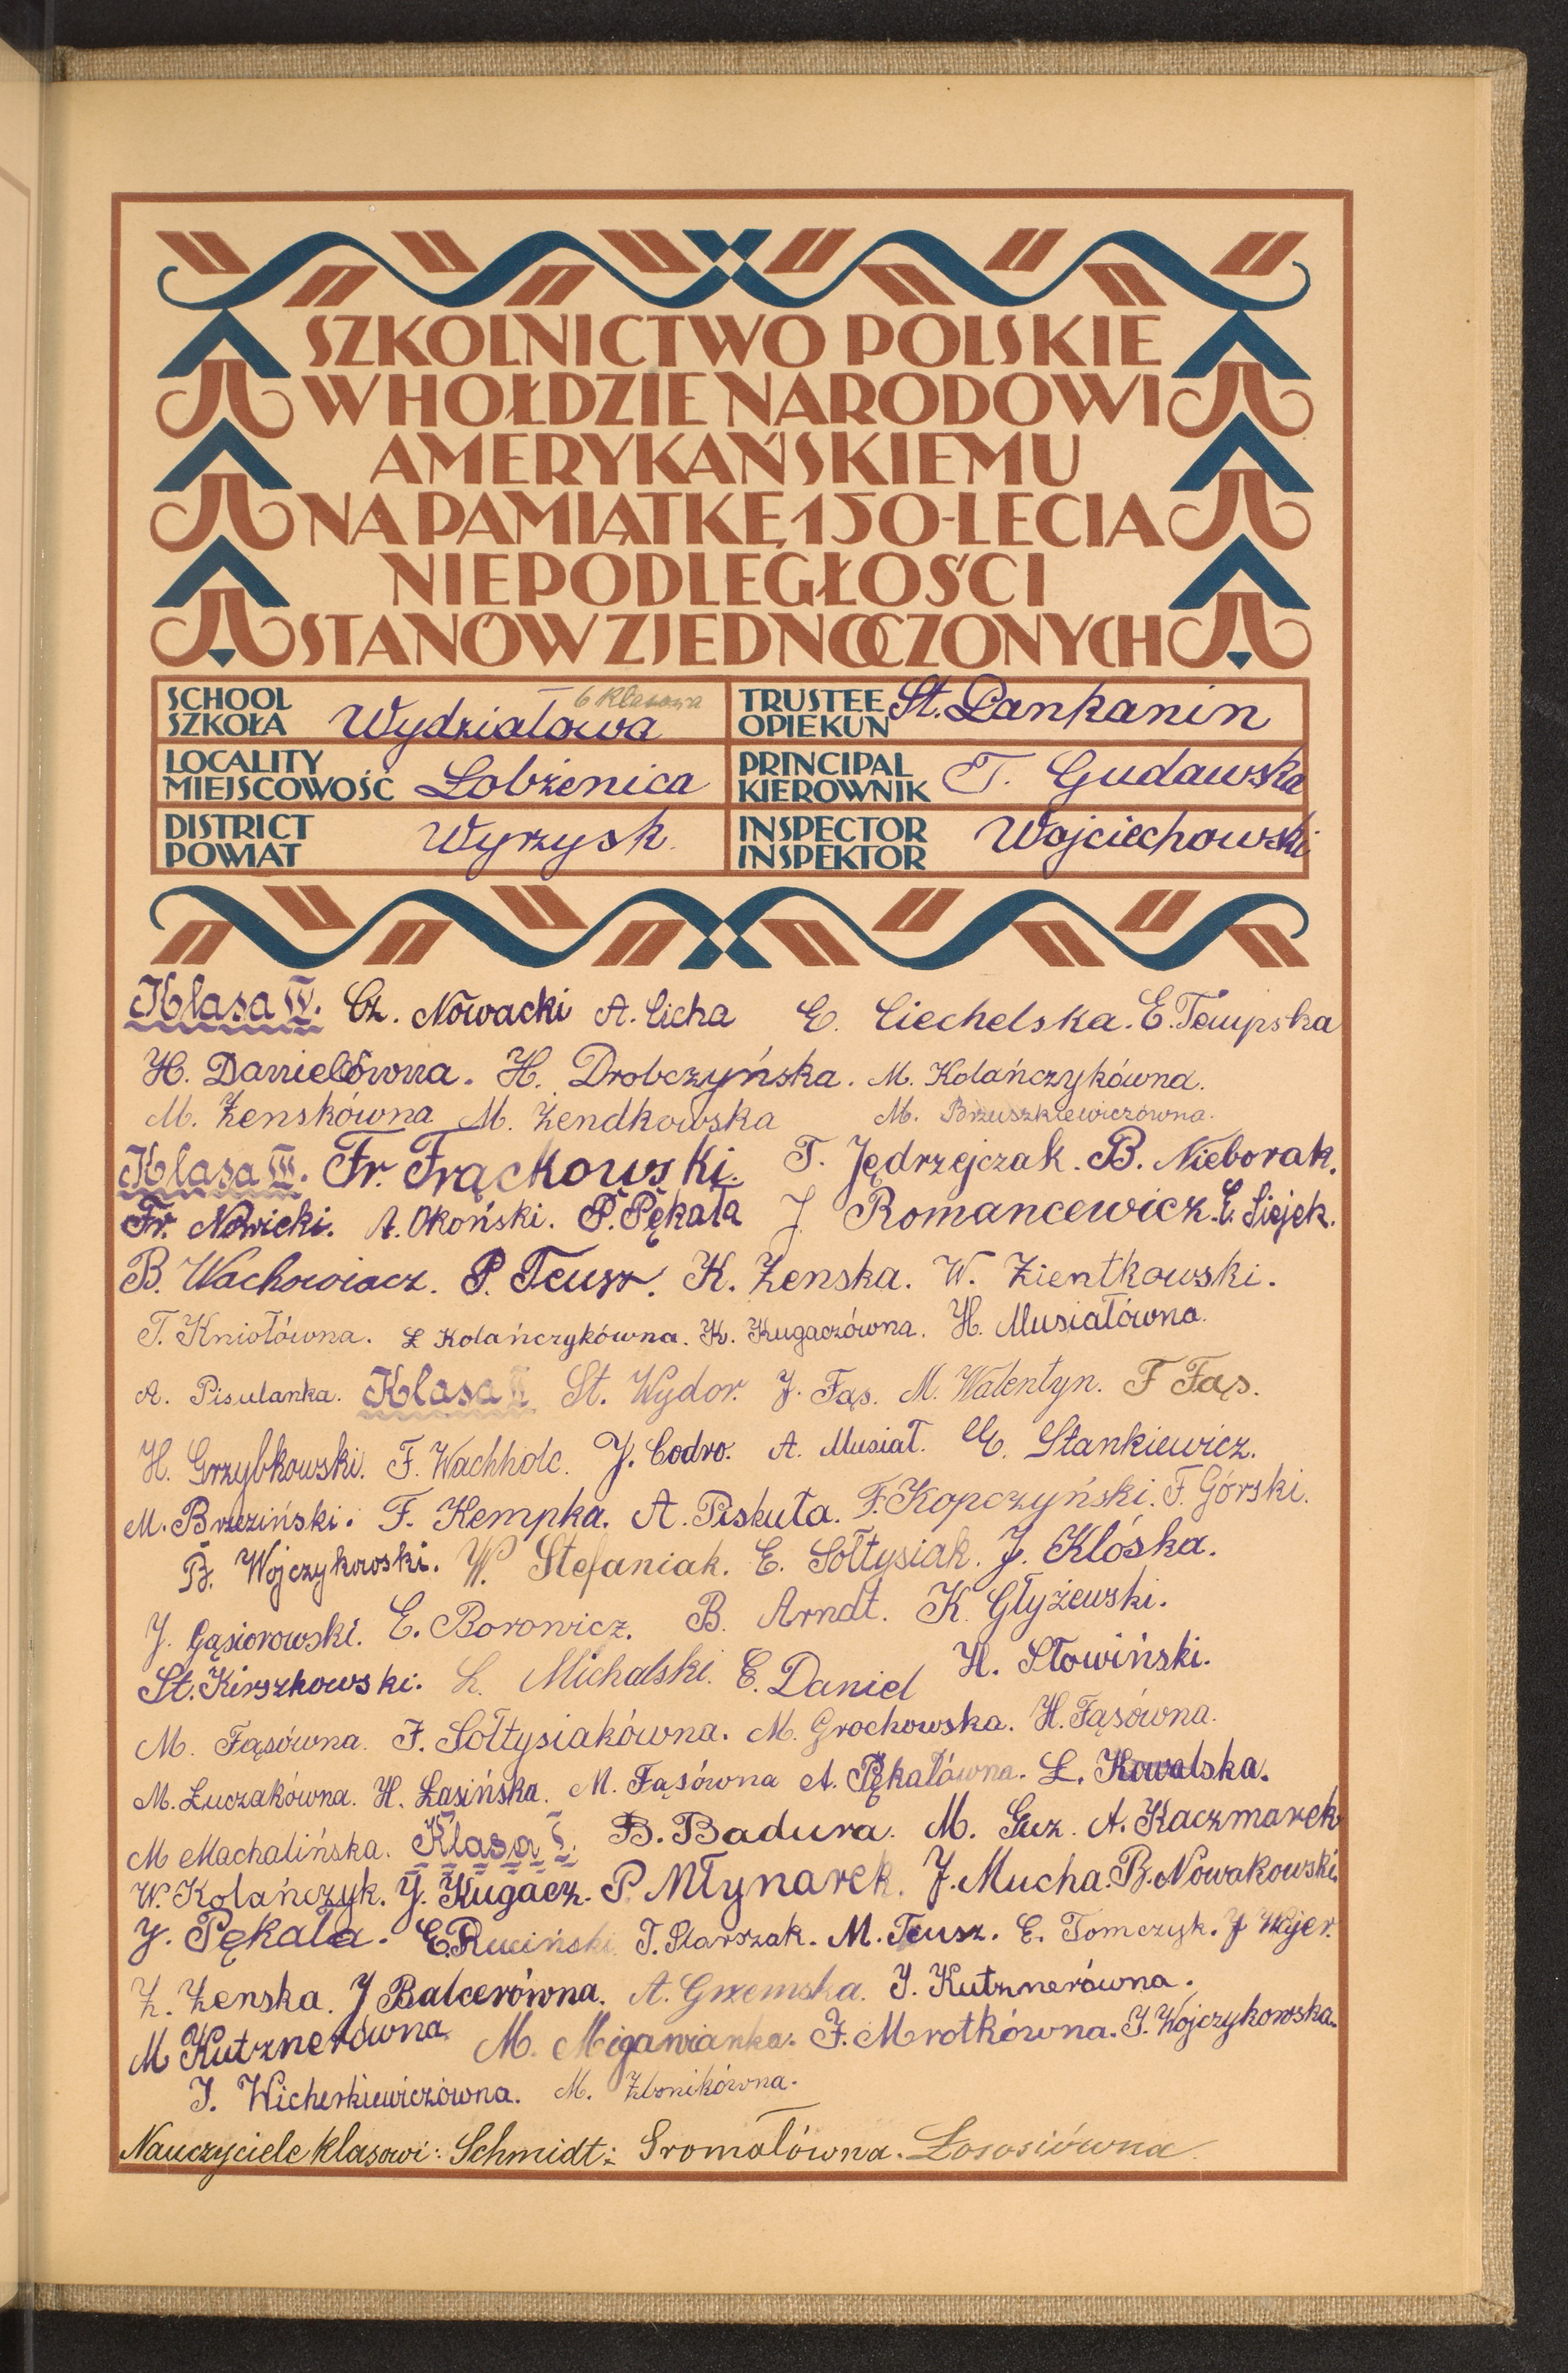 SZKOLNICTWO POLSKIE
W HOŁDZIE NARODOWI
AMERYKAŃSKIEMU
NA PAMIĄTKĘ 150-LECIA
NIEPODLEGŁOŚCI
STANÓW ZJEDNOCZONYCH
SCHOOL SZKOŁA Wydziałowa 6 klasowa
TRUSTEE OPIEKUN St. Pankanin
LOCALITY MIEJSCOWOŚĆ Łobżenica
PRINCIPAL KIEROWNIK T. Gudawska
DISTRICT POWIAT Wyrzysk.
INSPECTOR INSPEKTOR Wojciechowski
Klasa IV. Cz. Nowacki A. Cicha E. Ciechelska. E. Tempska
H. Danielówna. H. Drobczyńska. M. Kolańczykówna.
M. Żenskówna M. Żendkowska M. Brzuszkiewiczówna.
Klasa III. Fr. Frąckowski. T. Jędrzejczak. B. Nieborak.
Fr. Nowicki. A. Okoński. P. Pękała J Romancewicz. E. Siejek.
B. Wachowiacz. P. Teusz. K. Żenska. W. Zientkowski.
T. Kniołówna. Ł Kolańczykówna. K. Kugaczówna. H. Musiałówna.
A. Pisulanka. Klasa II St. Wydor. J. Fąs. M. Walentyn. F Fąs.
H. Grzybkowski. F. Wachholc. J. Codro. A. Musiał. E. Stankiewicz.
M. Brzeziński. F. Kempka. A. Piskuła. F. Kopczyński. F. Górski.
B. Wójczykowski. W. Stefaniak. E. Sołtysiak. J. Klóska.
J. Gąsiorowski. E. Borowicz. B. Arndt. K. Głyżewski.
St. Kirszkowski. L. Michalski. E. Daniel H. Słowiński.
M. Fąsówna. F. Sołtysiakówna. M. Grochowska. H. Fąsówna.
M. Łuczakówna. H. Łasińska. M. Fąsówna A. Pękałówna. L. Kowalska.
M Machalińska. Klasa I. B. Badura. M. Guz. A. Kaczmarek
W. Kolańczyk. J. Kugacz. P. Młynarek. J. Mucha. B. Nowakowski.
J. Pękala. E. Ruciński. T. Starszak. M. Teusz. E. Tomczyk. J Wejer.
Z. Żenska. J Balcerówna. A. Grzemska. J. Kutznerówna.
M Kutznerówna. M. Migawianka. F. Mrotkówna. J. Wójczykowska.
J. Wicherkiewiczówna. M. Zbonikówna.
Nauczyciele klasowi: Schmidt: Gromałówna. Łososiówna